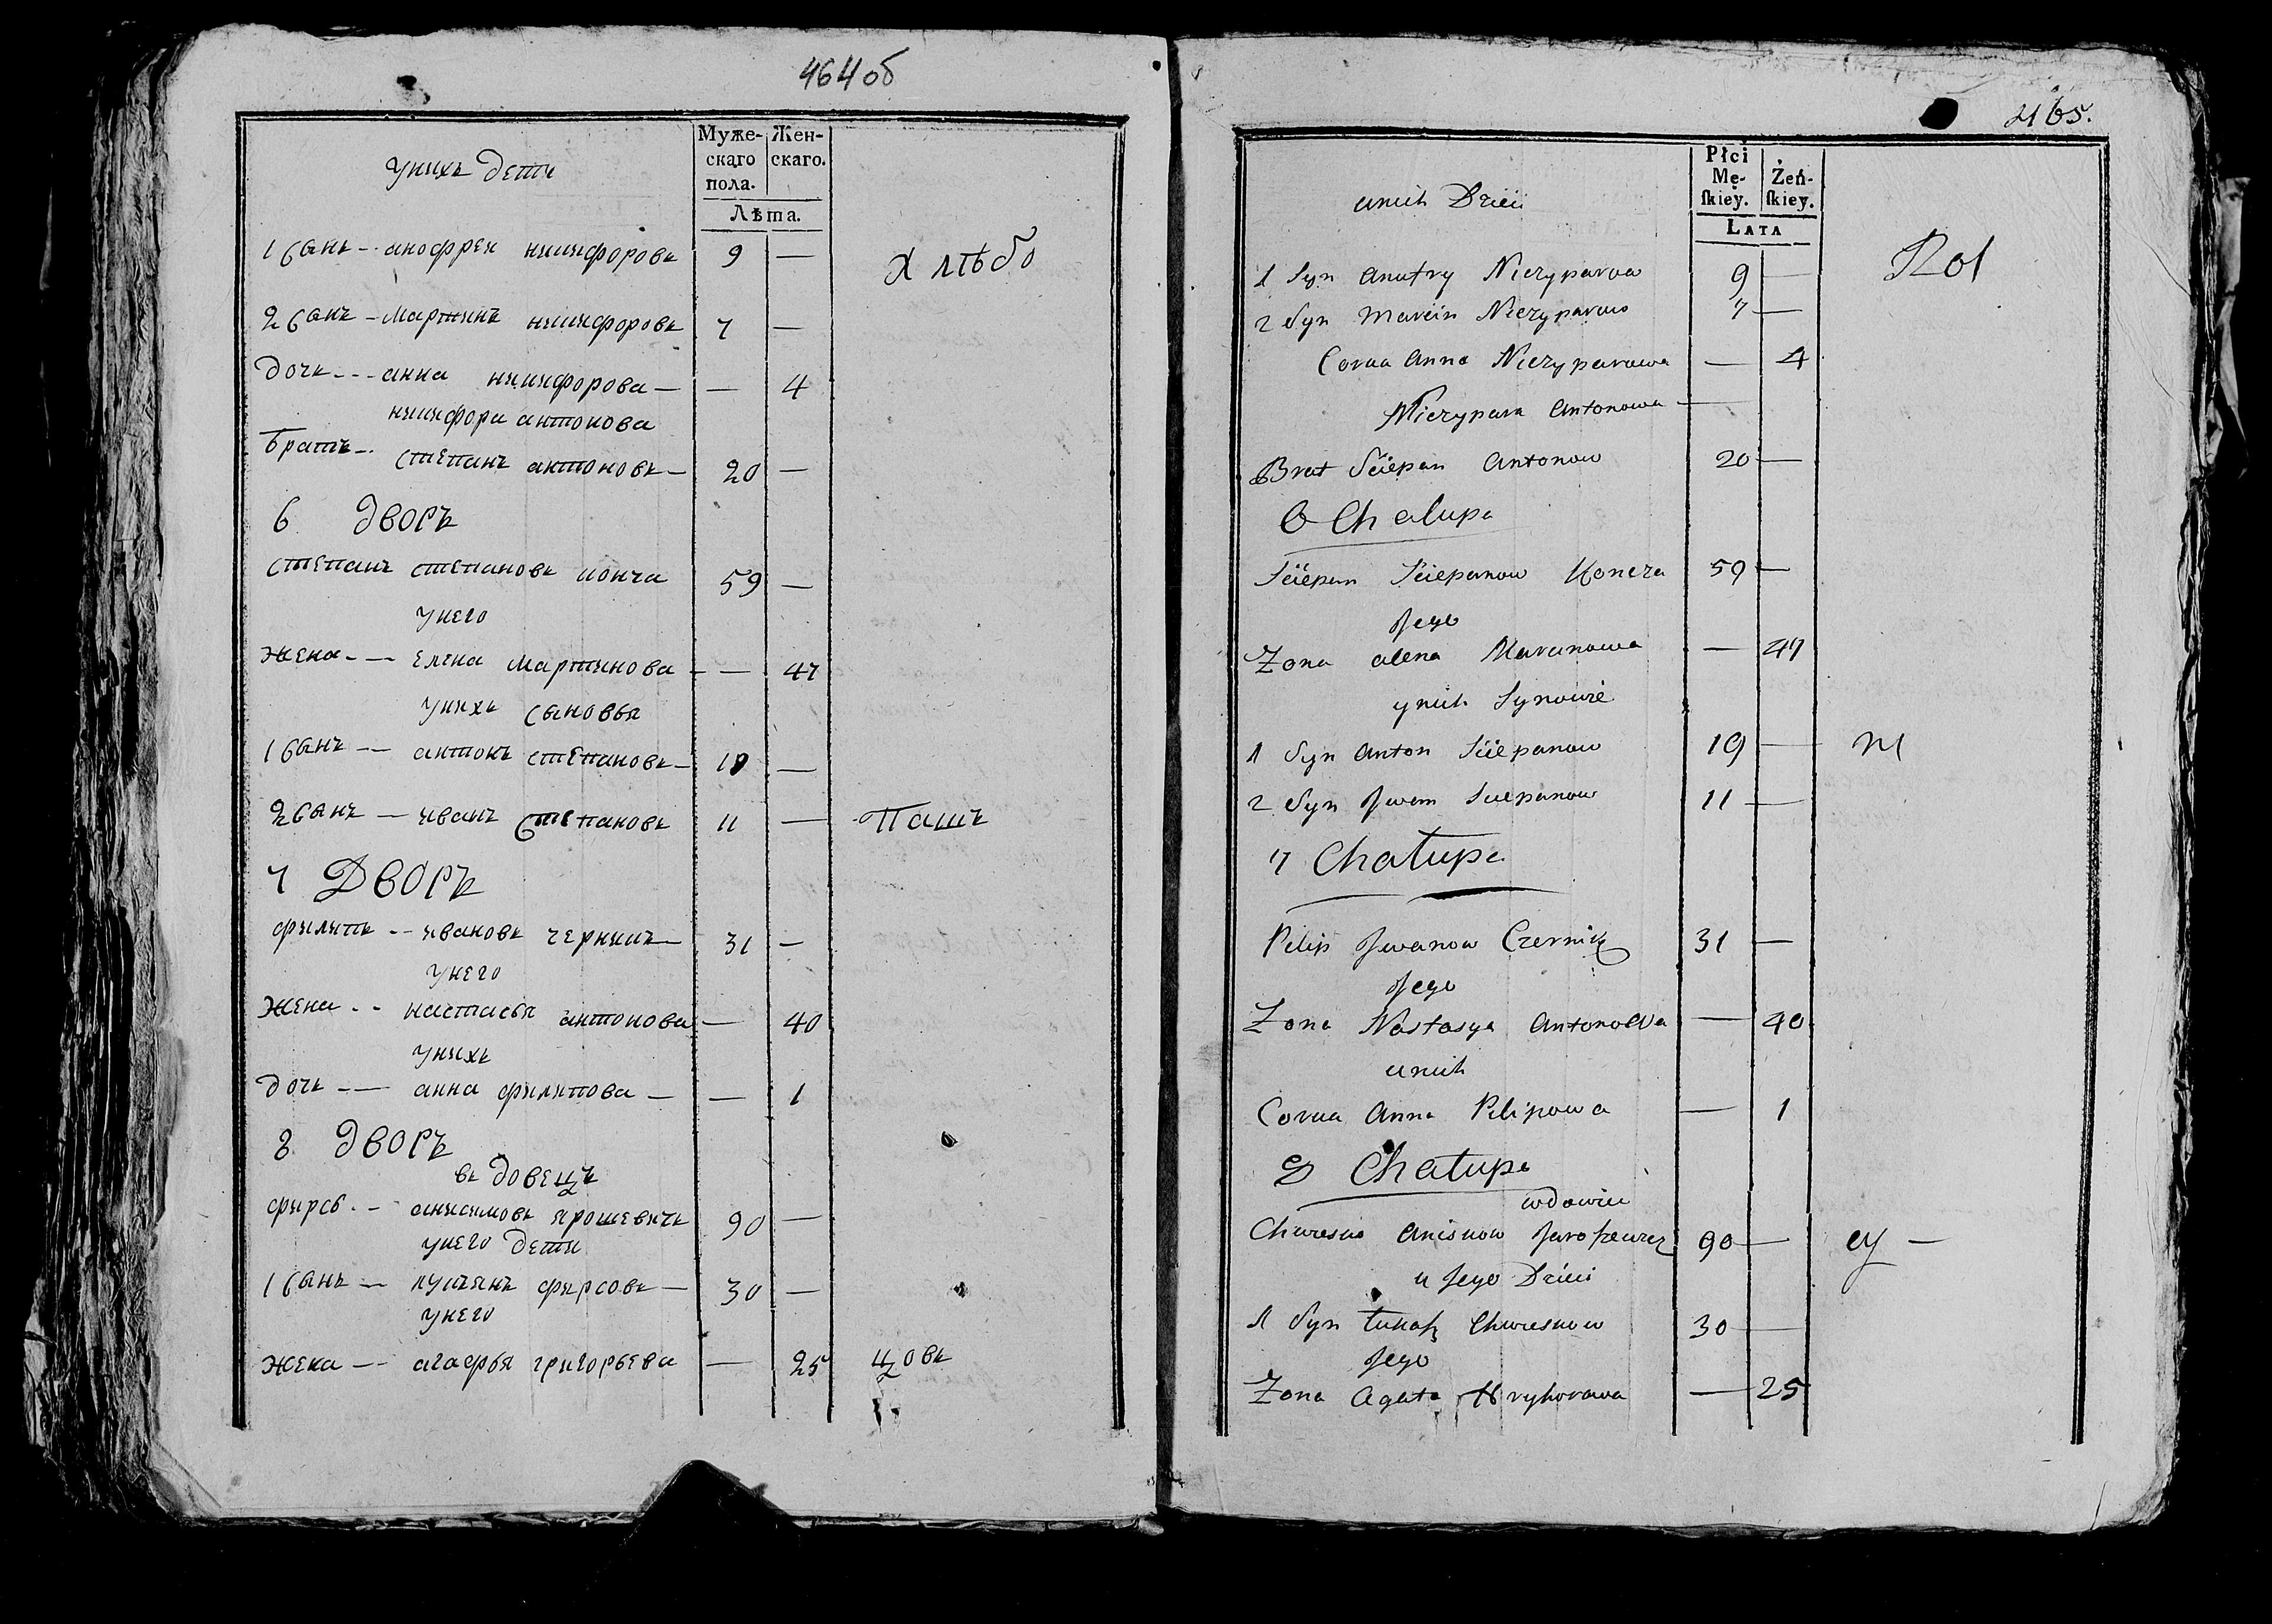 464об
Муже-
скаго
пола.
Жен-
скаго.
Лѣта.
унихъ дети
1 сынъ - анофреи никифоровъ 9 —
Хлѣбо
2 сынъ - мартинъ никифоровъ 7 —
дочь - - - анна никифорова — — 4
никифора антонова
братъ - степанъ антоновъ — 20 —
6 дворъ
степанъ степановъ конча 59 —
унего
жена - — елена мартинова - — 47
унихъ сыновья
1 сынъ - — антонъ степановъ — 19 —
2 сынъ — иванъ степановъ 11 — Пашъ
7 Дворъ
филипъ - - ивановъ черникъ — 31 —
унего
жена - - настасья антонова — 40
унихъ
дочь - — анна филипова — — 1
8 дворъ
вдовецъ
фирсъ - - анисимовъ ярошевичъ 90 —
унего дети
1 сынъ — лукъянъ фирсовъ — 30 —
унего
жена - — агафья григорьева — 25 цовъ
465.
Płci
Mę-
skiey.
Żeń-
skiey.
LATA
unich Dzieci
Rol
1 Syn Anufry Niczyparow 9 —
2 Syn Marcin Niczyparow 7 —
Corka Anna Niczyparowa — 4
Niczypara Antonowa —
Brat Sciepan Antonow 20 —
6 Chalupa
Sciepan Sciepanow Koncza 59 —
Jego
Zona Alena Marcinowa — 47
ynich Synowie
1 Syn Anton Sciepanow 19 — ni
2 Syn Jwan Sciepanow 11 —
7 Chałupa
Pilip Jwanow Czernik 31 —
Jego
Zona Nastasya Antonowa — 40
unich
Corka Anna Pilipowa — 1
8 Chałupa
wdowiec
Chwiesko Aniskow Jaroszewicz 90 — cy —
u Jego Dzieci
1 Syn Łukasz Chwieskow 30 —
Jego
Zona Agata Hryhorowa — 25